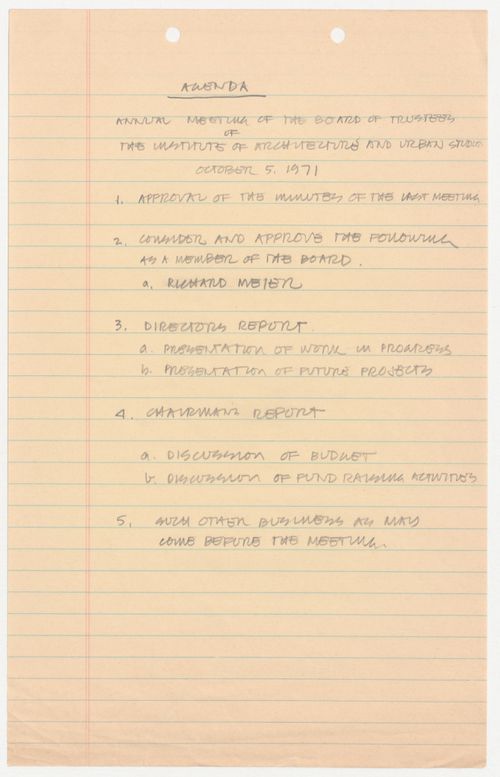 AGENDA
ANNUAL MEETING OF THE BOARD OF TRUSTEES
OF
THE INSTITUTE OF ARCHITECTURE AND URBAN STUDIES
OCTOBER 5, 1971
1. APPROVAL OF THE MINUTES OF THE LAST MEETING
2. CONSIDER AND APPROVE THE FOLLOWING
AS A MEMBER OF THE BOARD.
a. RICHARD MEIER
3. DIRECTORS REPORT.
a. PRESENTATION OF WORK IN PROGRESS
b. PRESENTATION OF FUTURE PROJECTS
4. CHAIRMANS REPORT
a. DISCUSSION OF BUDGET
b. DISCUSSION OF FUND RAISING ACTIVITIES
5. SUCH OTHER BUSINESS AS MAY
COME BEFORE THE MEETING.